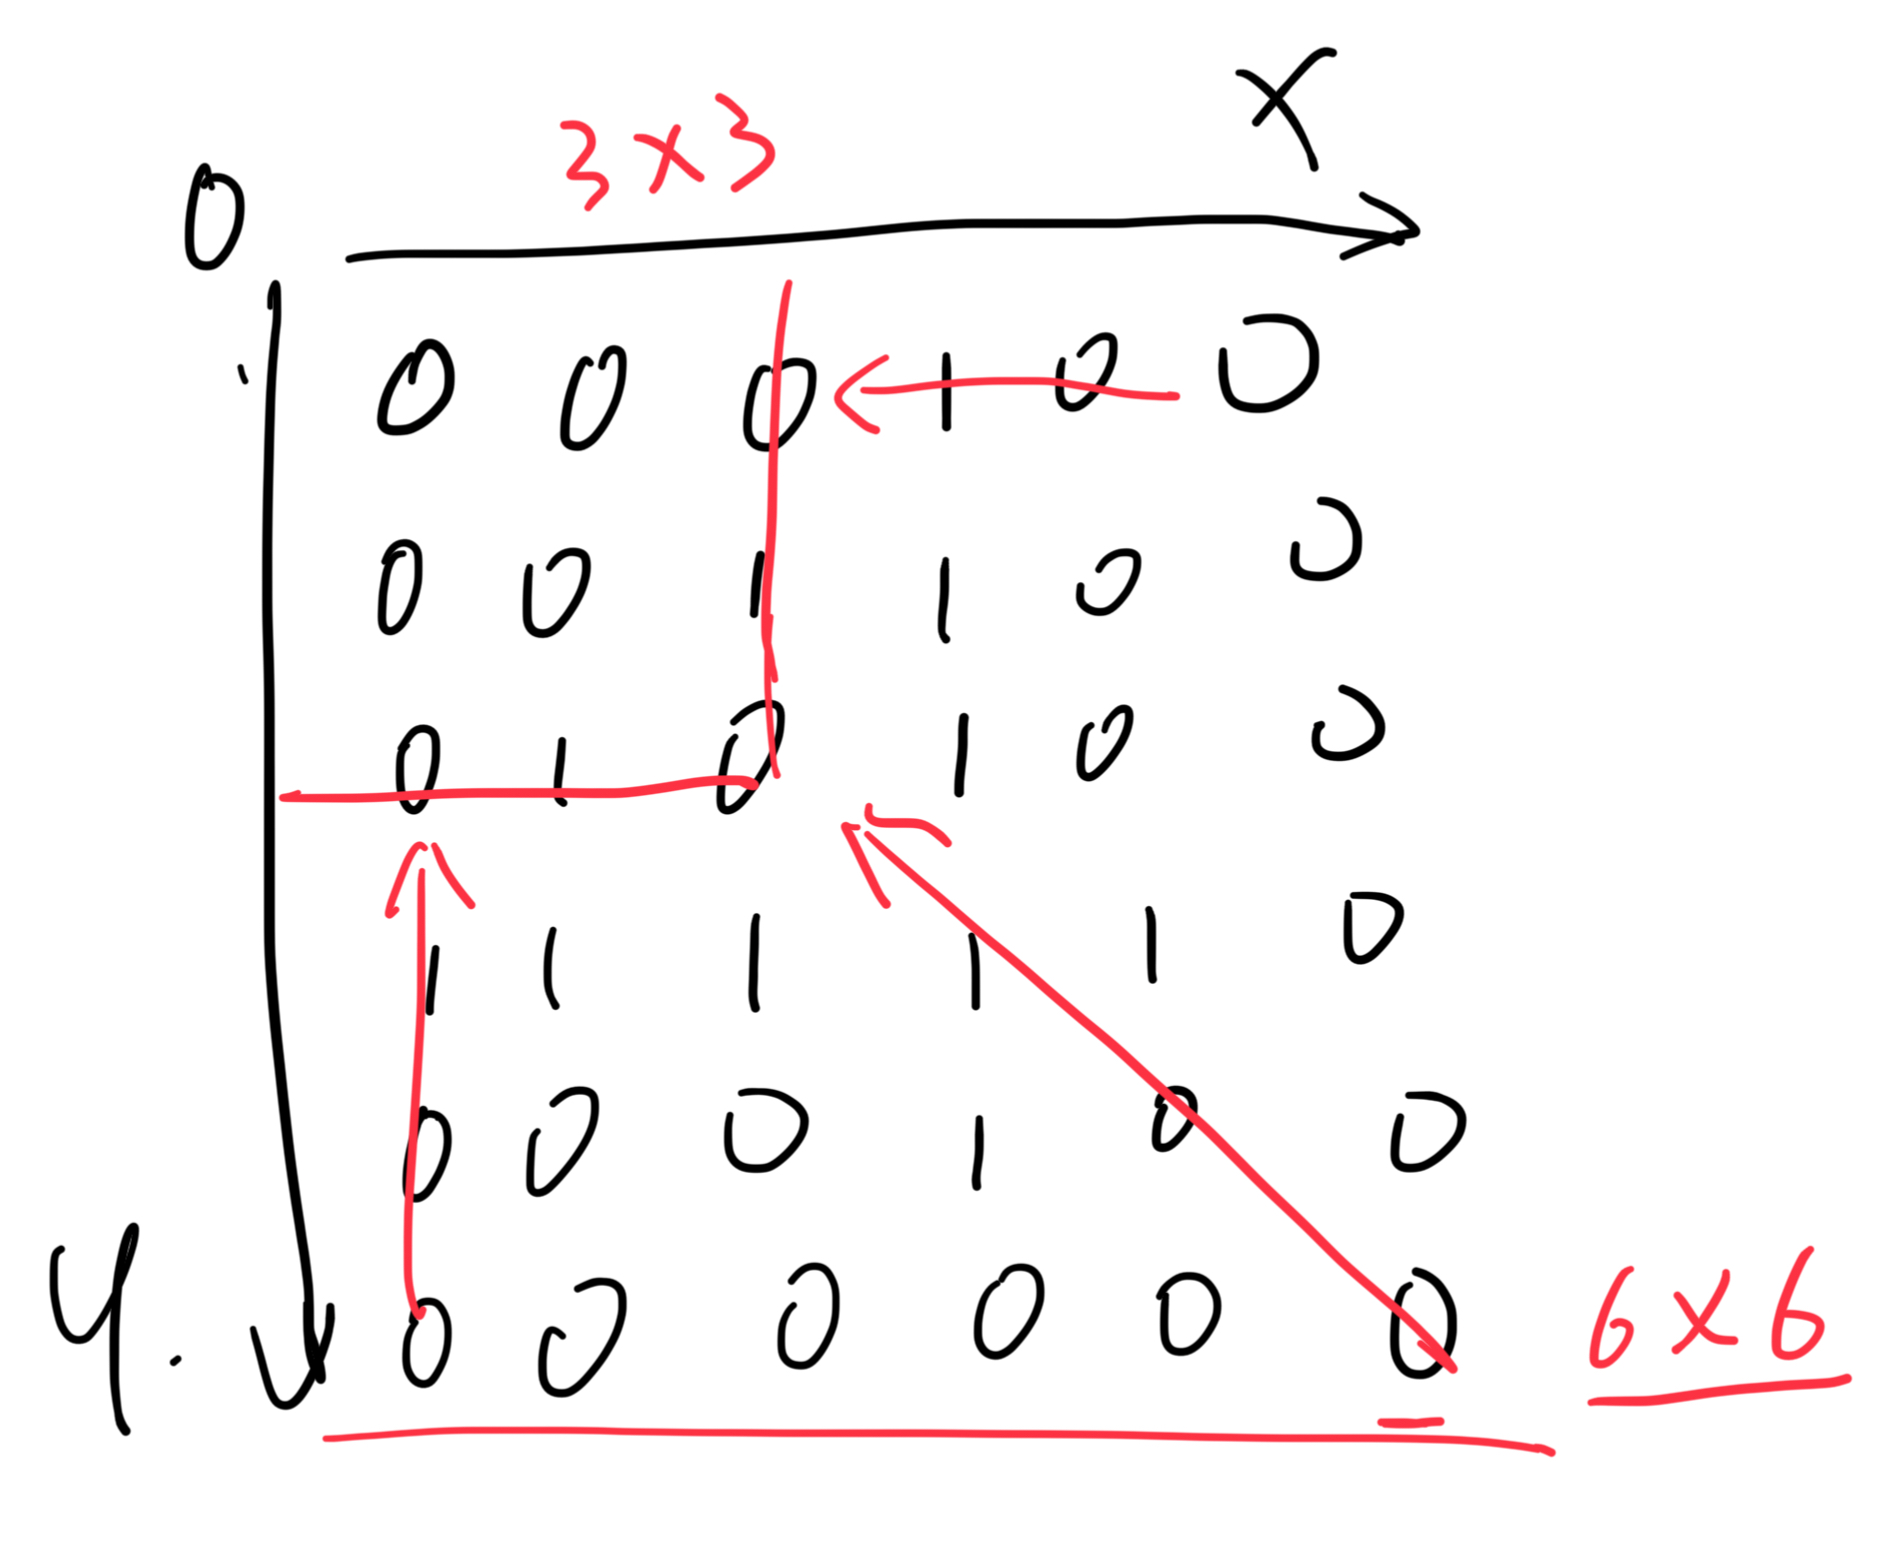 3x3
X
0
0 0 0 1 0 0
0 0 1 1 0 0
0 1 0 1 0 0
1 1 1 1 1 0
0 0 0 1 0 0
y. 0 0 0 0 0 0 6x6